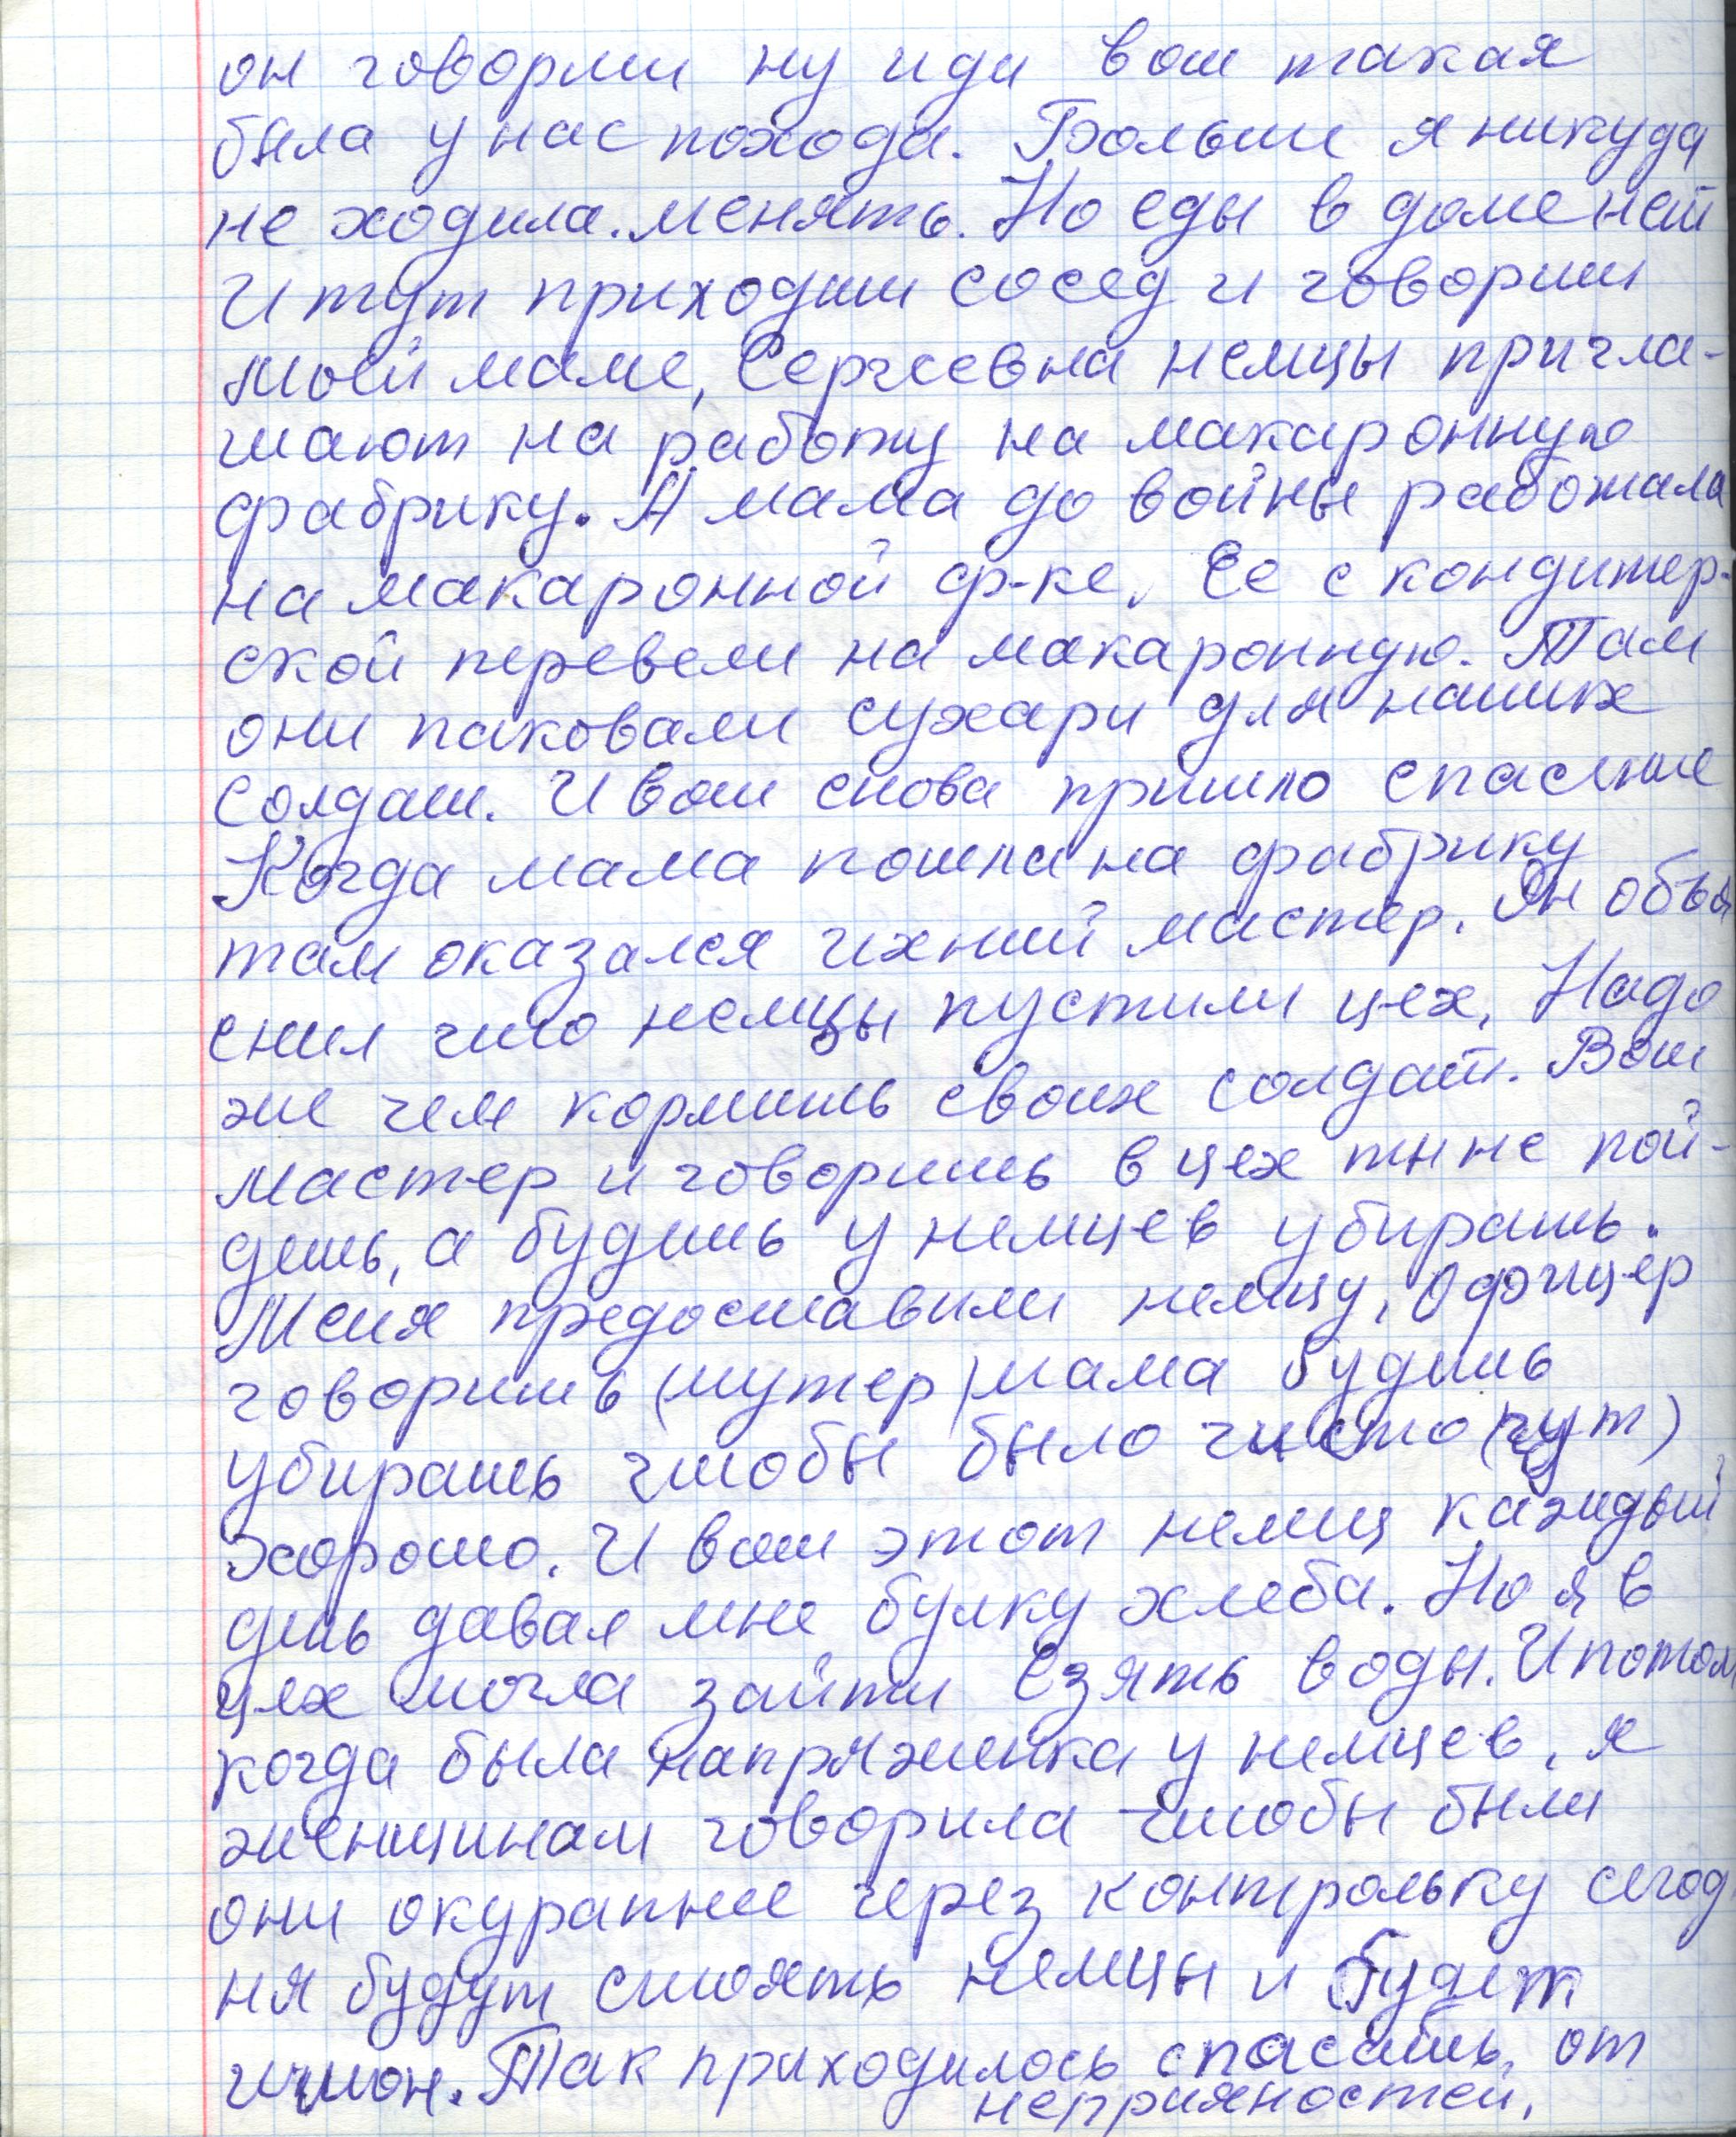 он говорит ну иди вот такая
была у нас похода. Больше я никуда
не ходила. менять. Но еды в доме нет
И тут приходит сосед и говорит
моей маме, Сергеевна немцы пригла-
шают на работу на макаронную
фабрику. А мама до войны работала
на макаронной ф-ке. Ее с кондитер-
ской перевели на макаронную. Там
они паковали сухари для наших
солдат. И вот снова пришло спасение
Когда мама пошла на фабрику
там оказался ихний мастер. Он объя
снил что немцы пустили цех. Надо
же чем кормить своих солдат. Вот
мастер и говорить в цех ты не пой-
дешь, а будишь у немцев убирать.
Меня предоставили немцу, Офицер
говорить (мутер) мама будишь
убирать чтобы было чисто (гут)
хорошо. И вот этот немиц каждый
день давал мне булку хлеба. Но я в
цех могла зайти взять воды. И потом
когда была напряженка у немцев, я
женщинам говорила чтобы были
они окуратнее через контрольку сегод
ня будут стоять немцы и будет
шмон. Так приходилось спасать от
неприяностей.